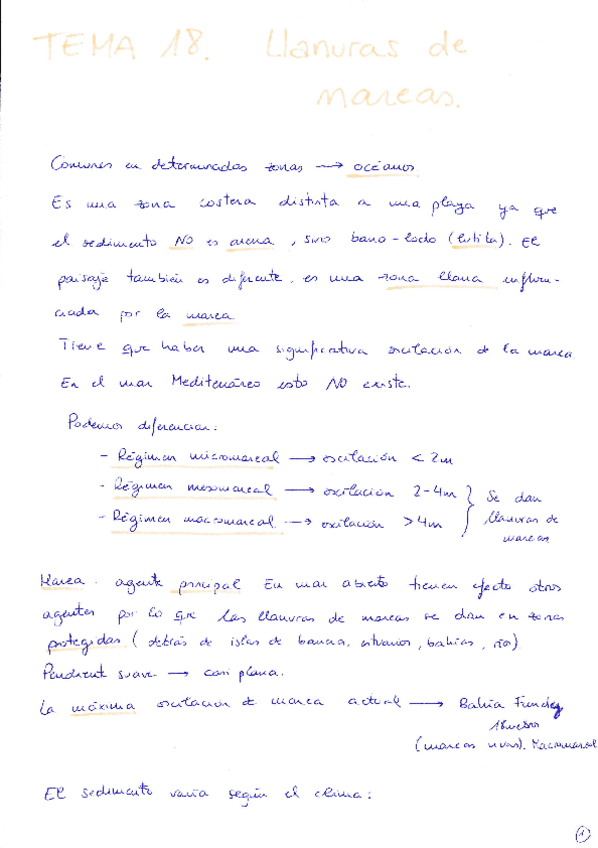 TEMA 18. Llanuras de
mareas.
Comunes en determinadas zonas → océanos
Es una zona costera distinta a una playa ya que
el sedimento NO es arena, sino barro-lodo (lutita). El
paisaje también es diferente, es una zona llana influen-
ciada por la marea
Tiene que haber una significativa oscilación de la marea
En el mar Mediterráneo esto NO existe.
Podemos diferenciar:
- Régimen micromareal → oscilación < 2m
- Régimen mesomareal → oscilación 2-4m
- Régimen macromareal → oscilación >4m
} Se dan
llanuras de
mareas
Marea: agente principal En mar abierto tienen efecto otros
agentes por lo que las llanuras de mareas se dan en zonas
protegidas (detrás de islas de barrera, estuarios, bahías, ría)
Pendiente suave → casi plana.
La máxima oscilación de marea actual → Bahía Fundey
(mareas vivas). Macromareal
El sedimento varía según el clima:
1